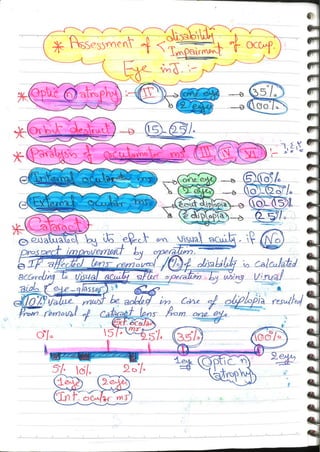 * Assessment of disability
Impairment of occup.
Eye inJ. :-
* Optic n atrophy :- II one eye → 35%
2 eye → 100%
* Orbit destruct → 15-25%
* Paralysis of oculomotor ms III IV VI
Internal ocular ms one eye 5-10%
2 eye 10-20%
External ocular ms diplopia 10-15%
diplopia 25%
* Cataract
evaluated by its efect on visual acuity if No
prospect improvement by operation.
IF affected lens removal % of disability is calculated
according to visual acuity after operation by using visual
aids (eye-glasses)
10% value must be added in case of diplopia resulted
from removal of cataract lens from one eye.
Ext ocular
0% 15% 25% 35% 100%
5% 10% 20% 1 eye Optic n 2 eyes
1 eye 2 eyes atrophy
Int ocular ms